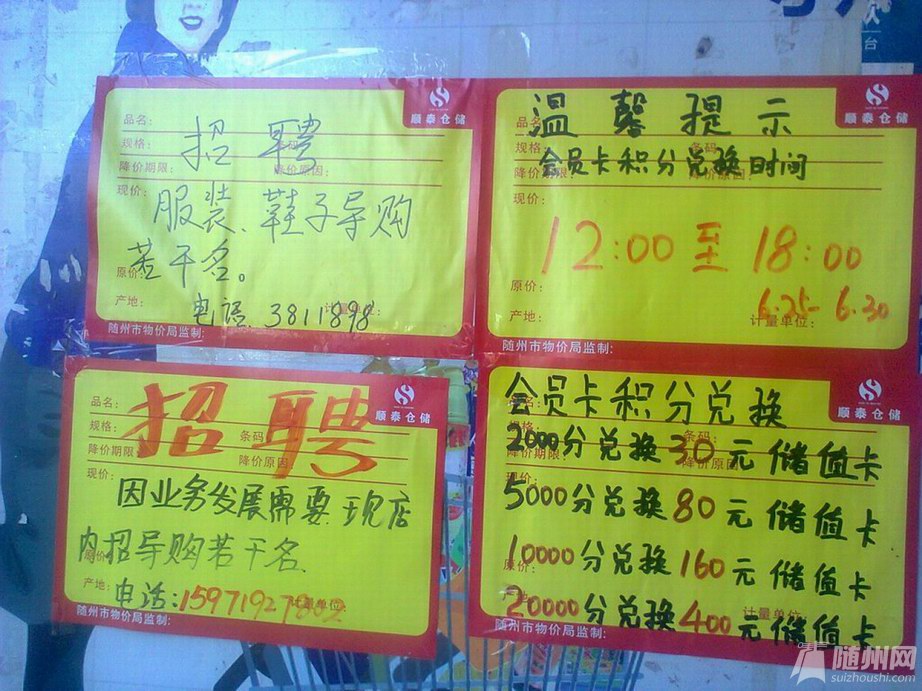 顺泰仓储
品名:
招聘
规格:
条码
降价期限:
降价原因:
现价:
服装、鞋子导购
若干名。
原价:
产地:
计量单位:
电话 3811898
随州市物价局监制:
顺泰仓储
品名:
温馨提示
规格:
条码:
会员卡积分兑换时间
降价期限:
降价原因:
现价:
12:00至18:00
原价:
6.25-6.30
产地:
计量单位:
随州市物价局监制:
顺泰仓储
品名:
招聘
规格:
条码
降价期限:
降价原因
现价:
因业务发展需要现店
内招导购若干名
原价
产地:
计量单位:
电话:15971927802
随州市物价局监制:
会员卡积分兑换
顺泰仓储
规格:
条码:
2000分兑换30元储值卡
降价期限:
降价原因
现价:
5000分兑换80元储值卡
10000分兑换160元储值卡
原价:
计量单位:
20000分兑换400元储值卡
随州市物价局监制:
随州网
suizhoushi.com